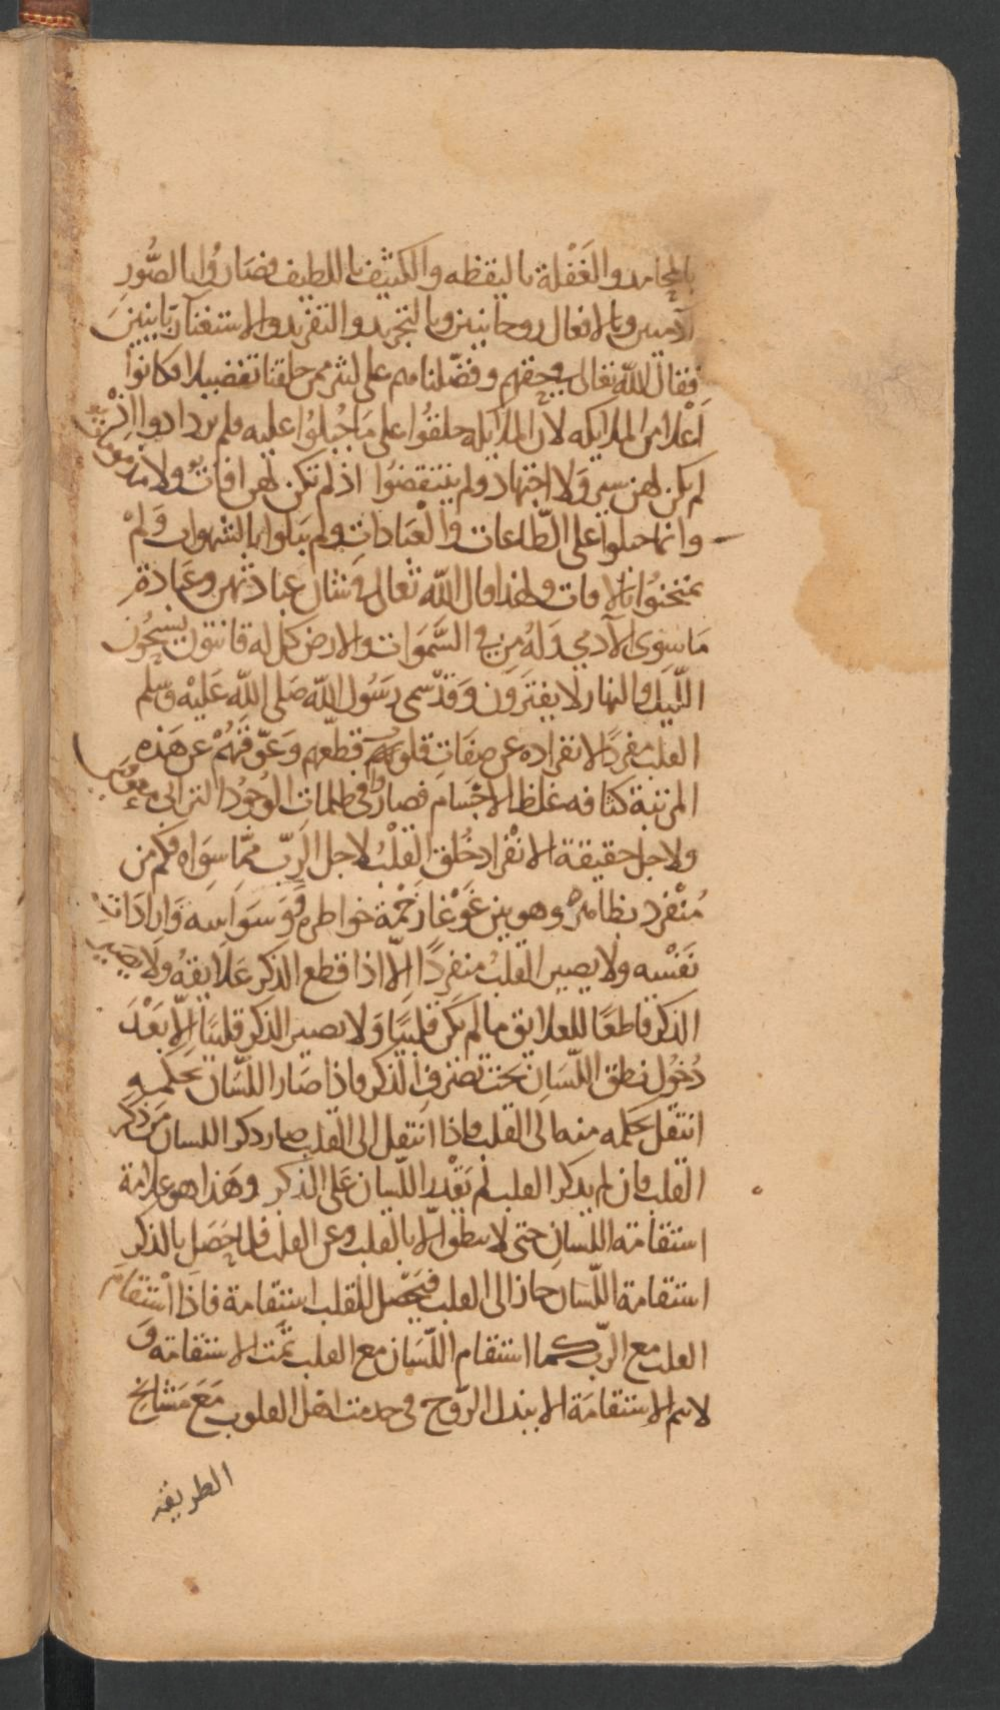 بالمحامد والغَفْلة باليقظه والكثيف باللطيف فصَارُوا بالصُّورِ
آدميين وبالافعال روحانيين وبالتجريد والتفريد والاستغنآ ربّانيينَ
فقال اللّه تعالى في حقهم وفضّلناهم على كثير ممن خلقنا تفضيلا فكانوا
اَعْلا من الملايكه لان الملايكه خلقُوا على مَا جُبلُوا عليه فلم يزدادوا اذ
لم يكن لهن سعى وَلا اجتهاد ولم ينتقصُوا اذ لم تكن لهن افات ولا
وانما جبلوا على الطّاعات والعبَاداتِ ولم يبتلوا بالشهوات وَلمْ
يمتحنُوا بالافات ولهذا قال اللّه تعالى في شان عبادتهن وعبَادةِ
مَا سِوى الآدمي وَلهُ من في السَّمَوات والارض كل له قانتون يسبحُون
اللّيلَ والنهار لا يفترَون وَقدْ سمى رَسُول اللّه صَلى اللّه عَليْه وسلم
القلب مفردًا لانفراده عن صفَاتِ قلوبهم قطّعهم وَعَوّقهُمْ عن هَذه
المرتبة كثافه غلظ الاجْسَام فصارُوا في ظلمات الوُجُود الترابى
ولاجل حقيقة الانفراد خُلق القلْبُ لاجل الرَبّ ممّا سِوَاه فكم من
مُنْفرد بظاهره وهو بين غَوْغا زَحْمة خواطره وَوَسَوَاسه وَارادَات
نَفْسه ولا يصير القلبُ منفردًا الّا اذا قطع الذكر عَلايقهُ ولا يصير
الذكر قاطعًا للعلايق ما لم يكن قلبيًا وَلا يصير الذكر قلبيًا الّا بَعْدَ
دُخُول نطق اللّسَان تحت تصَرّفِ الذكر فاذا صَار اللسَّان بحكمه
انتقل بحكمه منه الى القلب فاذا انتقل الى القلب صار ذكر اللسان من ذكر
القلب فان لم يذكر القلب لم يَقْدر اللّسان عَلى الذكر وهَذا هو علامة
استقامة اللسانِ حتى لا ينطق الّا بالقلب وعن القلب فلما حَصَل بالذكر
استقامة اللّسان جاز الى القلب فيَحْصل للقلب استقامة فاذا اسْتقام
القلب مع الرّب كما استقام اللّسَان مع القلب تَمّت الاستقامه وَ
لا تتم الاستقامَة الا ببذل الرّوح في خدمة اهْل القلوب مَعَ مَشايخ
الطريقه